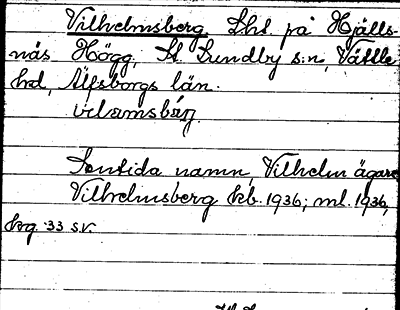 Vilhelmsberg Lht. på Hjälls-
näs Högg, St. Lundby s:n, Vättle
hd, Älfsborgs län.
vılamsbärj
Sentida namn Vilhelm ägare
Vilhelmsberg kb. 1936; ml. 1936,
krg 33 s.v.